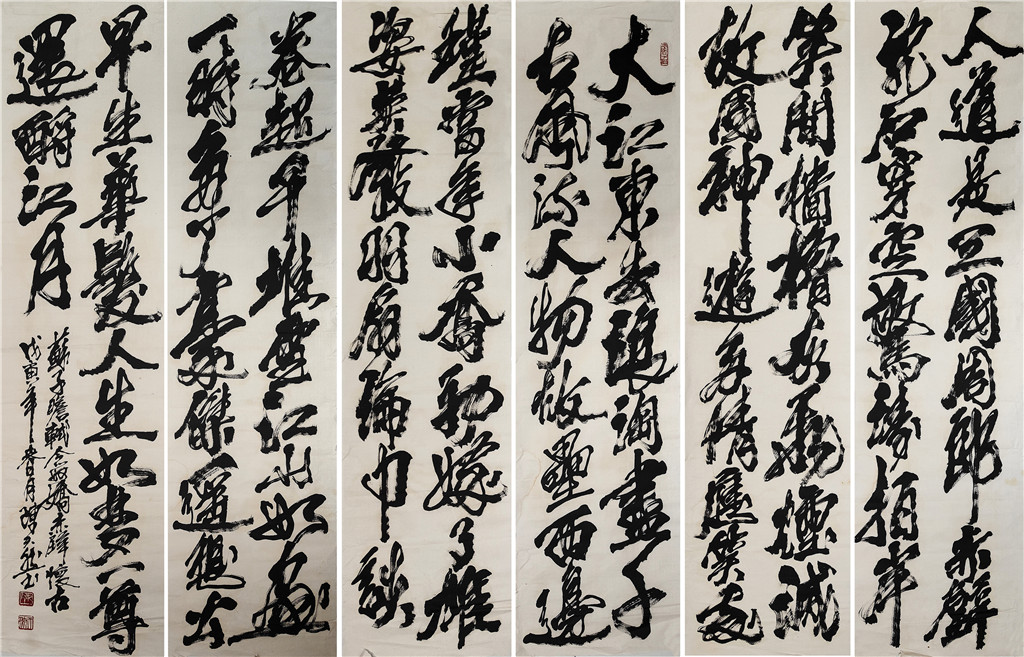 人道是三國周郎赤壁
亂石穿空驚濤拍岸
笑間檣櫓灰飛煙滅
故國神遊多情應笑我
大江東去浪淘盡千
古風流人物故壘西邊
瑾當年小喬初嫁了雄
姿英發羽扇綸巾談
卷起千堆雪江山如畫
一時多少豪傑遙想公
早生華髮人生如夢一尊
還酹江月
蘇子瞻軾念奴嬌赤壁懷古
戊寅年春月